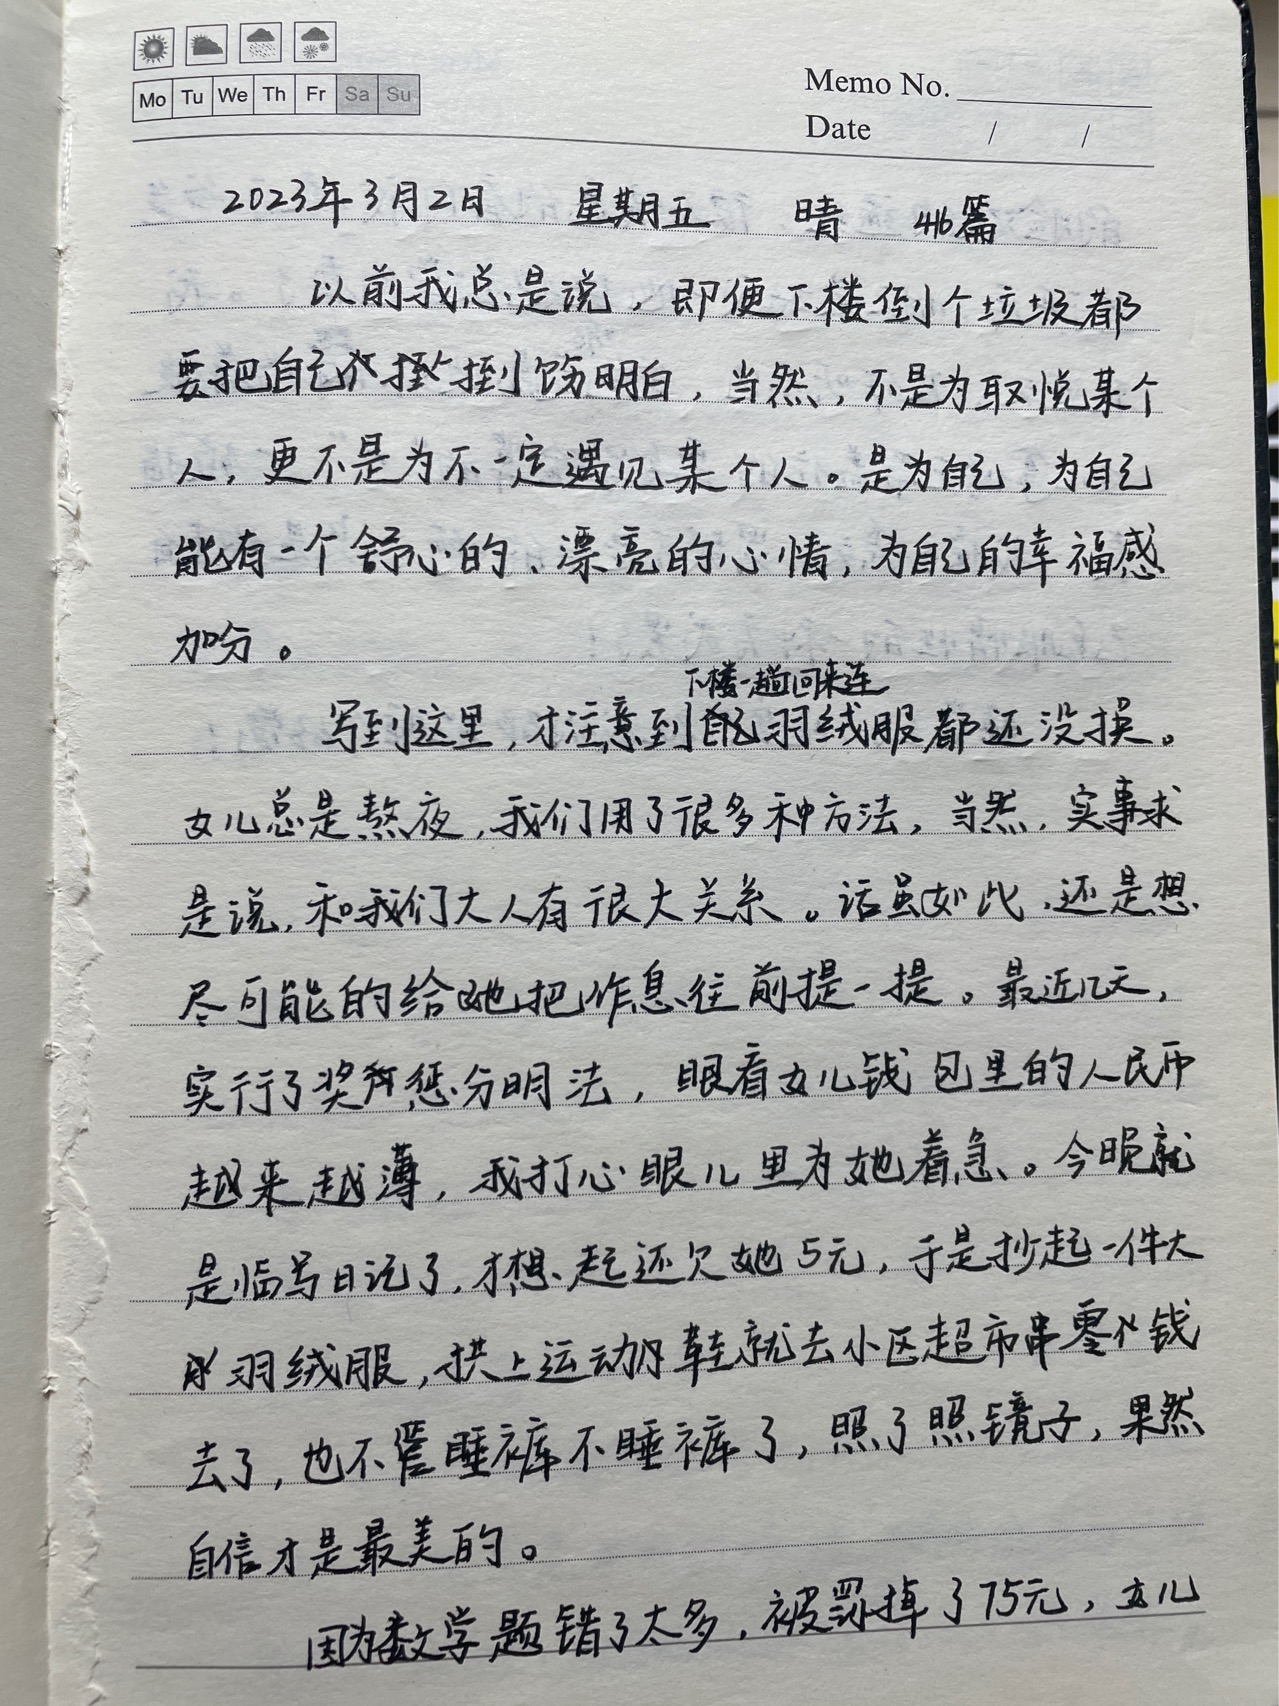 Mo Tu We Th Fr Sa Su
Memo No.
Date / /
2023年3月2日 星期五 晴 416篇
以前我总是说，即便下楼倒个垃圾都
要把自己捯饬明白，当然，不是为取悦某个
人，更不是为不一定遇见某个人。是为自己，为自己
能有一个舒心的、漂亮的心情，为自己的幸福感
加分。
下楼一趟回来连
写到这里，才注意到自己羽绒服都还没换。
女儿总是熬夜，我们用了很多种方法，当然，实事求
是说，和我们大人有很大关系。话虽如此，还是想
尽可能的给她把作息往前提一提。最近几天，
实行了奖惩分明法，眼看女儿钱包里的人民币
越来越薄，我打心眼儿里为她着急。今晚就
是临写日记了，才想起还欠她5元，于是抄起一件大
羽绒服，拱上运动鞋就去小区超市串零钱
去了，也不管睡裤不睡裤了，照了照镜子，果然
自信才是最美的。
因为数学题错了太多，被罚掉了75元，女儿